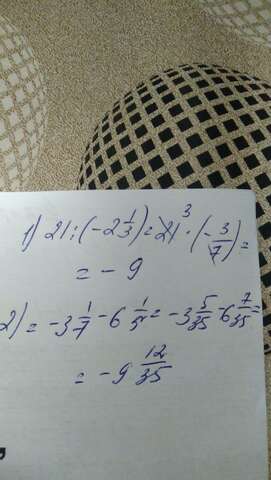 1) 21 : (-2 1/3) = 21 3 · (-3/7) =
= -9
2) = -3 1/7 - 6 1/5 = -3 5/35 - 6 7/35 =
= -9 12/35